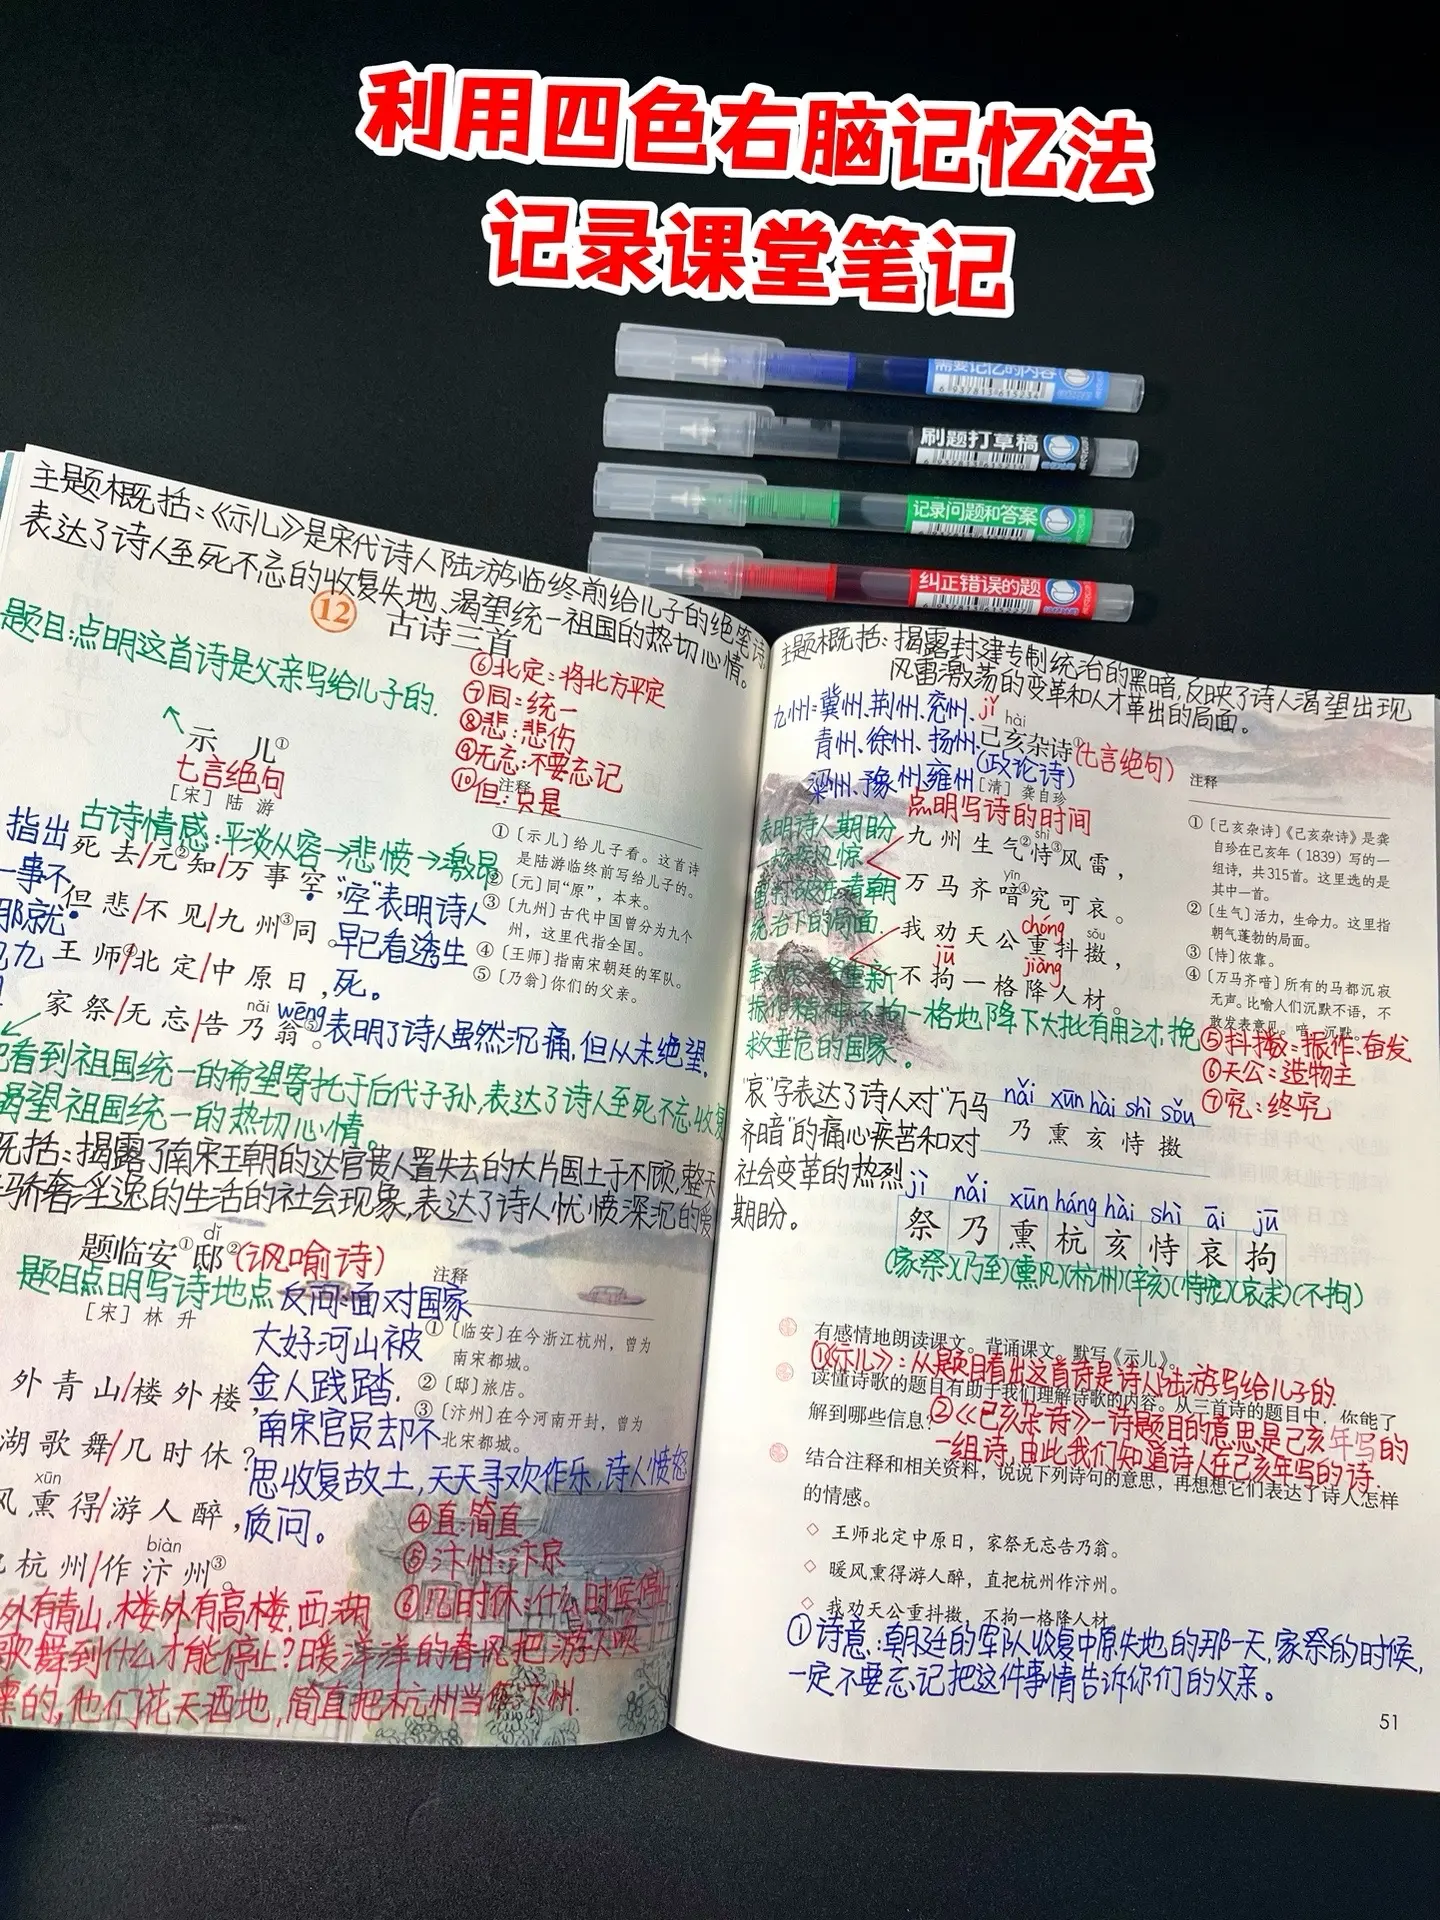 利用四色右脑记忆法
记录课堂笔记
需要记忆的内容
6 937813 615234
刷题打草稿
记录问题和答案
纠正错误的题
主题概括:《示儿》是宋代诗人陆游临终前给儿子的绝笔诗
表达了诗人至死不忘的收复失地、渴望统一祖国的热切心情。
12
古诗三首
题目:点明这首诗是父亲写给儿子的.
⑥北定:将北方平定
⑦同:统一
⑧悲:悲伤
⑨无忘:不要忘记
⑩但:只是
示 儿①
七言绝句
[宋] 陆 游
注释
古诗情感:平淡从容→悲愤→激昂
指出
死去/元②知/万事空,
一事不
但悲/不见/九州③同。
那就
王师④/北定/中原日,
九
家祭/无忘/告乃翁⑤。
nǎi wēng
"空"表明诗人
早已看透生
死。
①〔示儿〕给儿子看。这首诗
是陆游临终前写给儿子的。
②〔元〕同“原”,本来。
③〔九州〕古代中国曾分为九个
州,这里代指全国。
④〔王师〕指南宋朝廷的军队。
⑤〔乃翁〕你们的父亲。
表明了诗人虽然沉痛,但从未绝望,
看到祖国统一的希望寄托于后代子孙,表达了诗人至死不忘收复
渴望祖国统一的热切心情。
概括:揭露了南宋王朝的达官贵人置失去的大片国土于不顾,整天
骄奢淫逸的生活的社会现象,表达了诗人忧愤深沉的爱
dǐ
题临安①邸②(讽喻诗)
题目点明写诗地点
[宋] 林 升
注释
反问:面对国家
大好河山被
金人践踏,
南宋官员却不
思收复故土,天天寻欢作乐,诗人愤怒
质问。
①〔临安〕在今浙江杭州,曾为
南宋都城。
②〔邸〕旅店。
③〔汴州〕在今河南开封,曾为
北宋都城。
外青山/楼外楼,
湖歌舞/几时休?
xūn
风熏得/游人醉,
biàn
杭州/作汴州③。
④直:简直
⑤汴州:汴京
⑥几时休:什么时候停止
外有青山,楼外有高楼,西湖
歌舞到什么才能停止?暖洋洋的春风把游人吹
熏的,他们花天酒地,简直把杭州当做汴州.
主题概括:揭露封建专制统治的黑暗,反映了诗人渴望出现
风雷激荡的变革和人才辈出的局面。
九州=冀州、荆州、兖州、
青州、徐州、扬州、
梁州、豫州、雍州
jǐ hài
己亥杂诗①(七言绝句)
(政论诗)
[清] 龚自珍
点明写诗的时间
九州生气②恃③风雷,
shì
yīn
万马齐喑④究可哀。
chóng sǒu
我劝天公重抖擞,
jū jiàng
不拘一格降人材。
表明诗人期盼
统治下的局面.
重新
不拘一格地降下大批有用之才,挽
救垂危的国家。
注释
①〔己亥杂诗〕《己亥杂诗》是龚
自珍在己亥年(1839)写的一
组诗,共315首。这里选的是
其中一首。
②〔生气〕活力,生命力。这里指
朝气蓬勃的局面。
③〔恃〕依靠。
④〔万马齐喑〕所有的马都沉寂
无声。比喻人们沉默不语,不
敢发表意见。喑,沉默。
⑤抖擞:振作.奋发
⑥天公:造物主
⑦究:终究
"哀"字表达了诗人对"万马
齐喑"的痛心疾苦和对
社会变革的热烈
期盼。
nǎi xūn hài shì sǒu
乃 熏 亥 恃 擞
jì nǎi xūn háng hài shì āi jū
祭 乃 熏 杭 亥 恃 哀 拘
(家祭)(乃至)(熏风)(杭州)(辛亥)(恃宠)(哀求)(不拘)
有感情地朗读课文。背诵课文。默写《示儿》。
①《示儿》:从题目看出这首诗是诗人陆游写给儿子的.
读懂诗歌的题目有助于我们理解诗歌的内容。从三首诗的题目中,你能了
解到哪些信息?
②《己亥杂诗》一诗题目的意思是己亥年写的
一组诗,由此我们知道诗人在己亥年写的诗.
结合注释和相关资料,说说下列诗句的意思,再想想它们表达了诗人怎样
的情感。
◇ 王师北定中原日,家祭无忘告乃翁。
◇ 暖风熏得游人醉,直把杭州作汴州。
◇ 我劝天公重抖擞,不拘一格降人材。
①诗意:朝廷的军队收复中原失地的那一天,家祭的时候,
一定不要忘记把这件事情告诉你们的父亲。
51